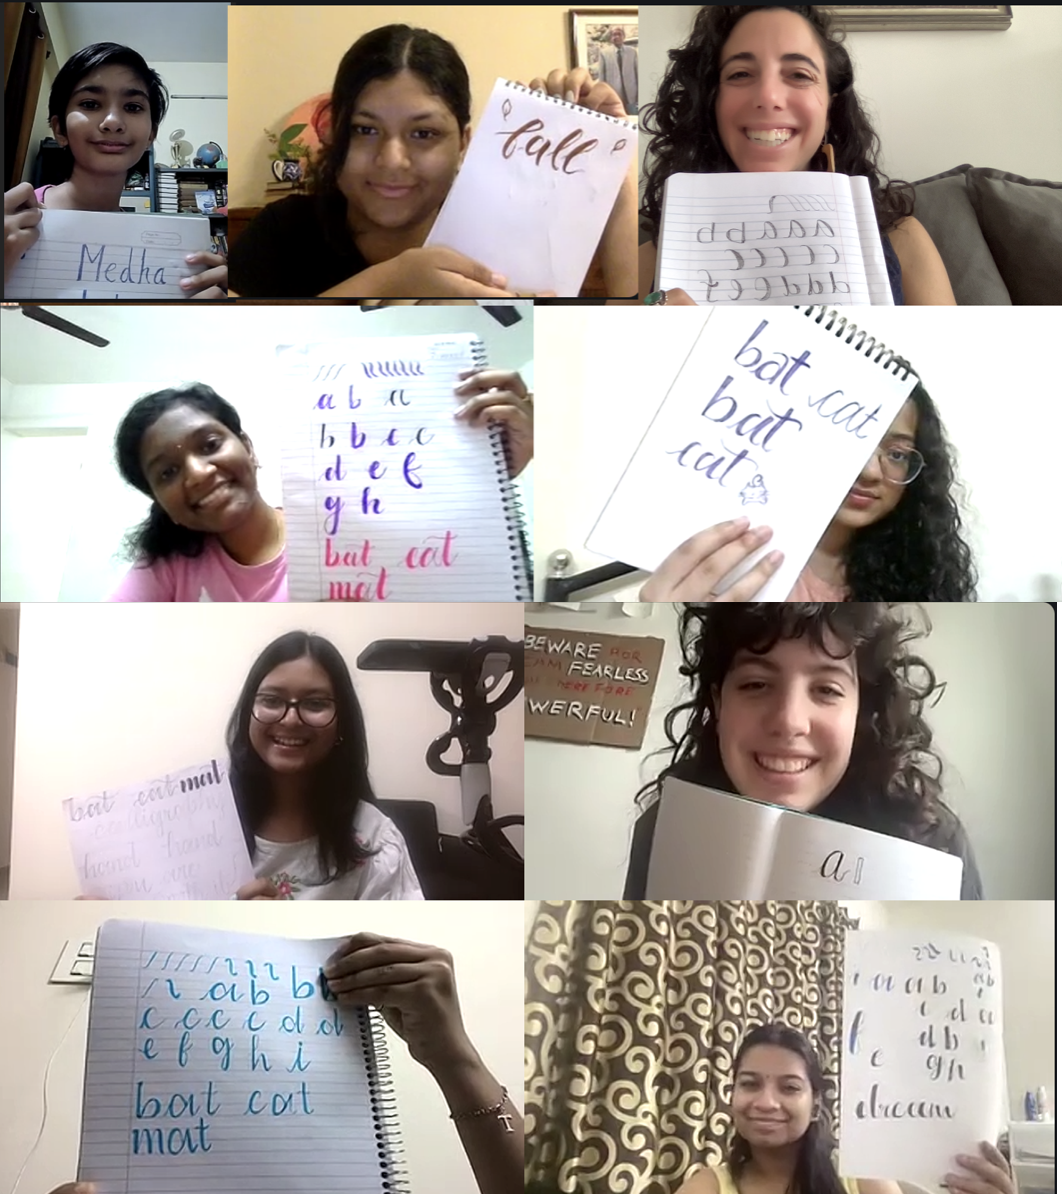 Medha
fall
a a a b b
c c c c c
d d d e e f
a b a
b b c c
d e f
g h
bat cat
mat
bat
cat
bat
cat
bat cat mat
calligraphy
hand hand
you are
BEWARE FOR
I AM FEARLESS
THEREFORE
a
a b b
c c c c d d
e f g h i
bat cat
mat
a a b
c d
f d b
e g h
dream